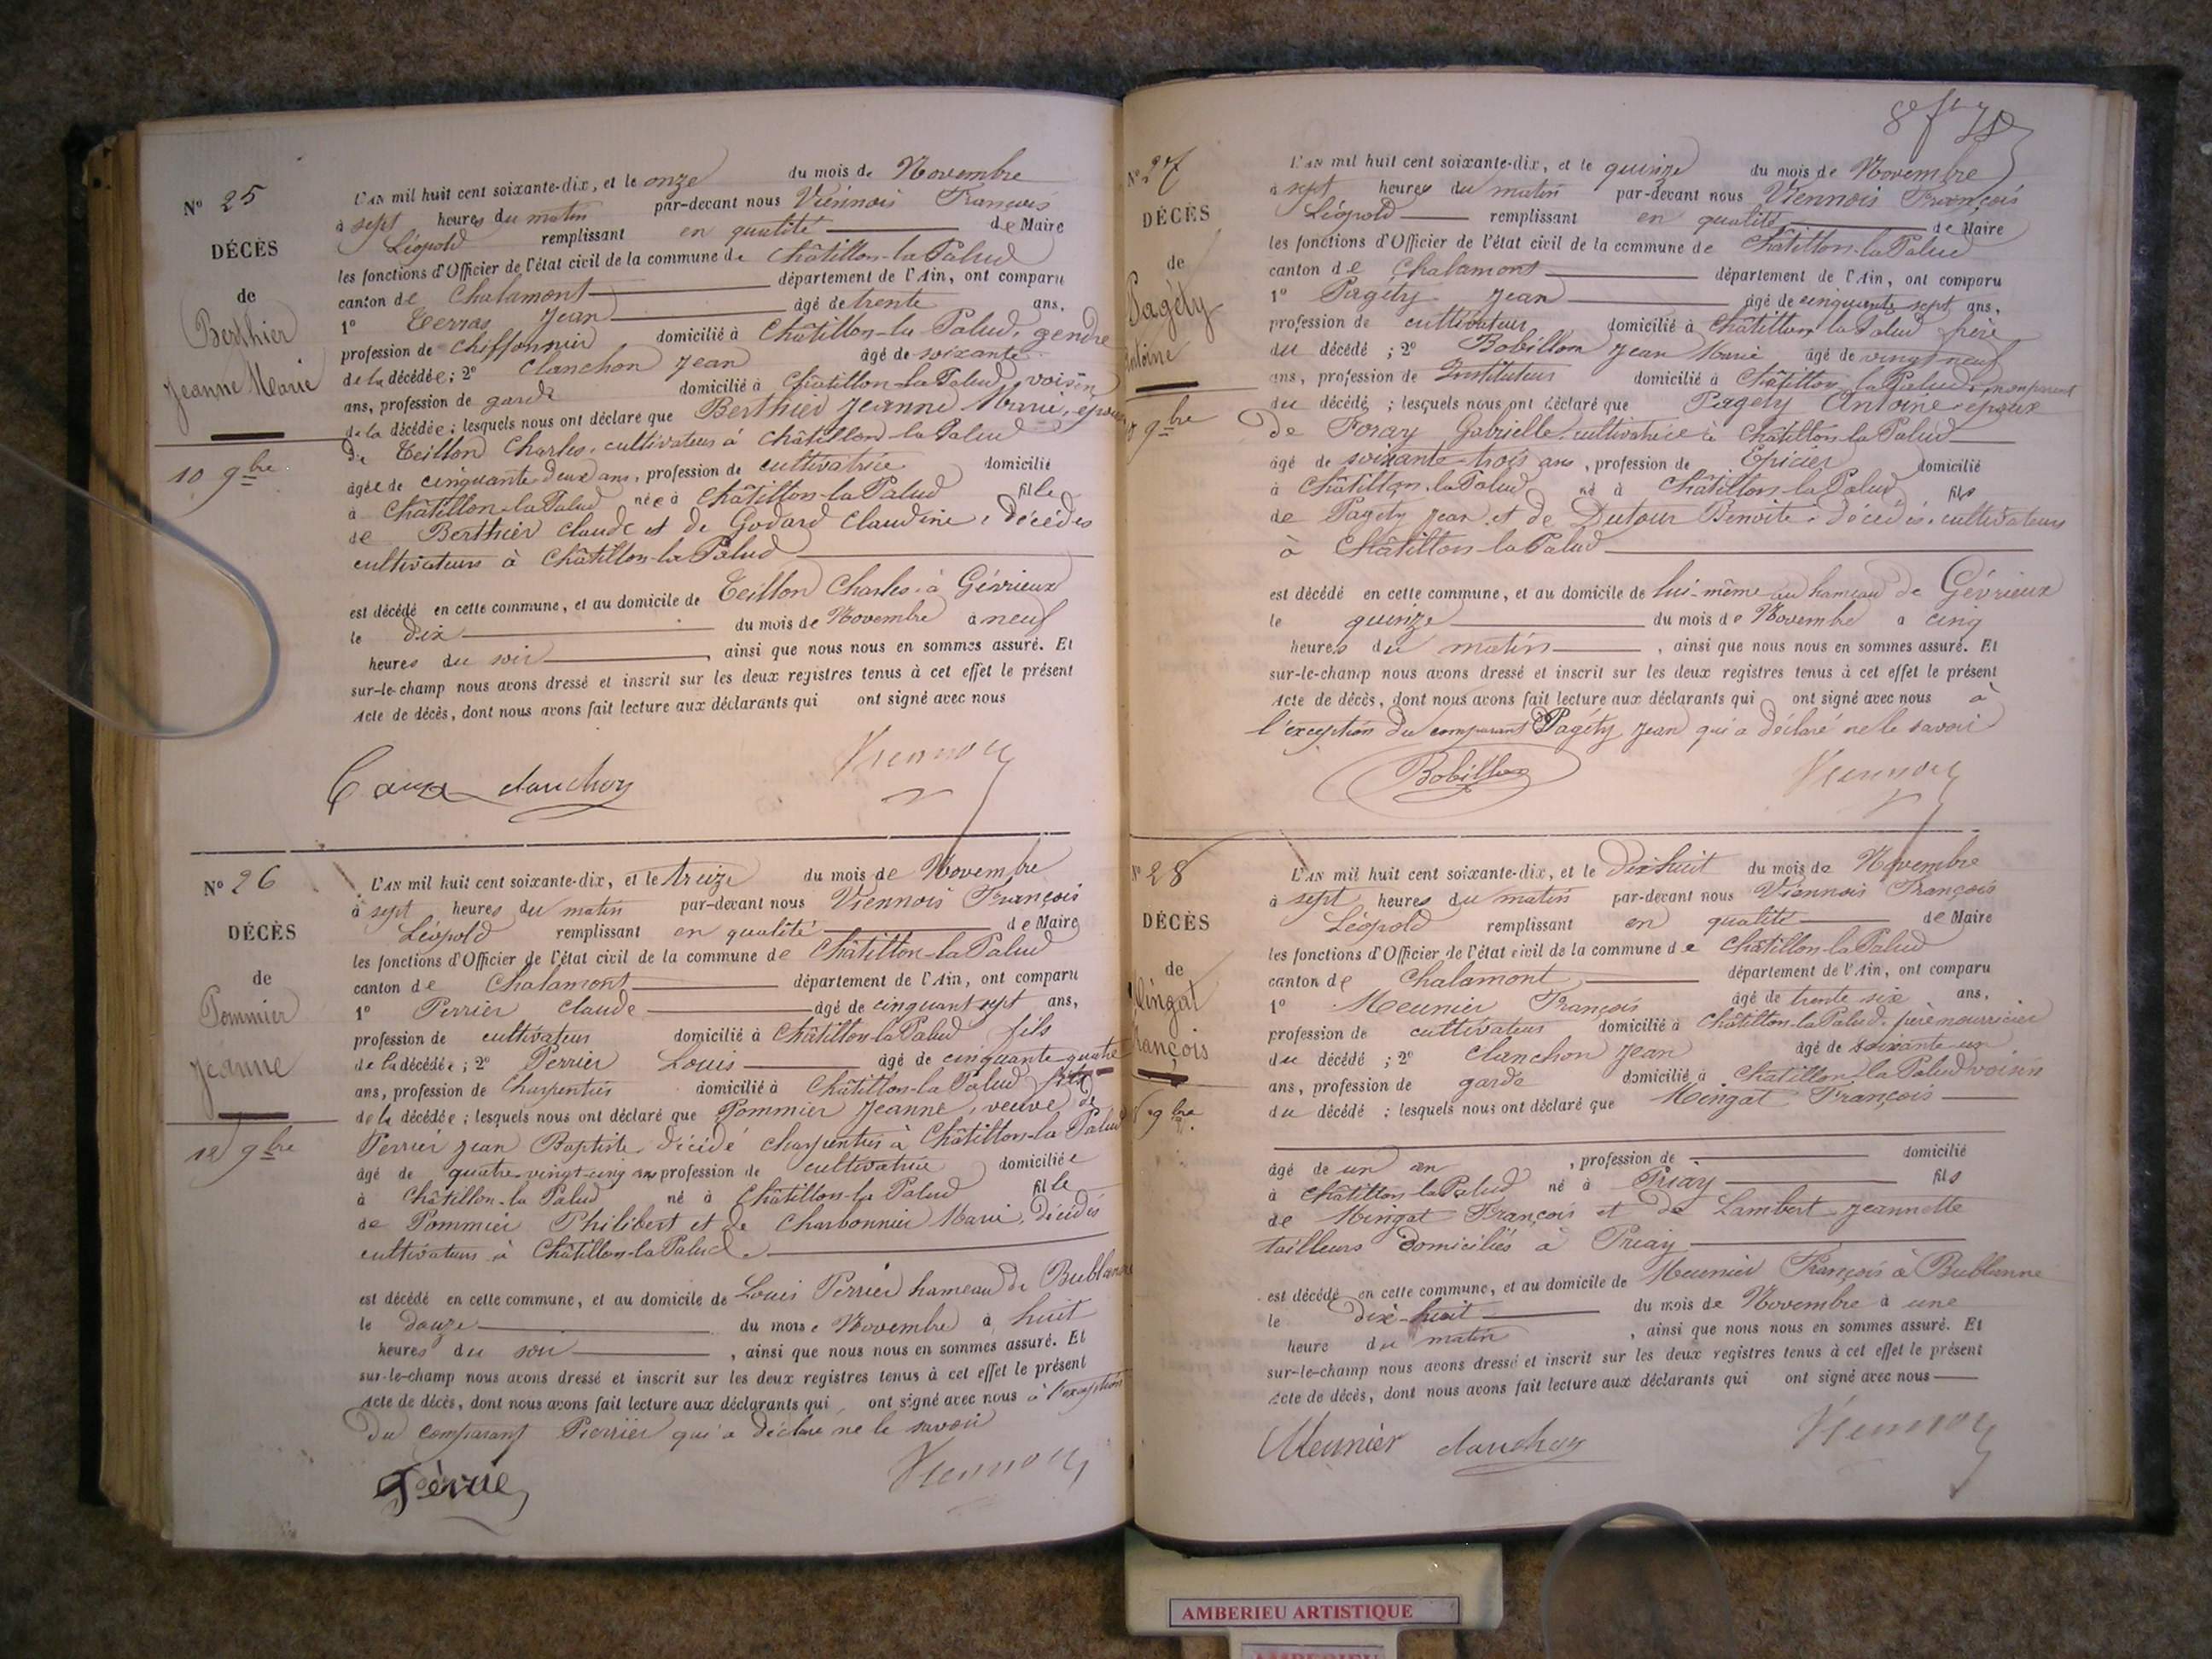 N° 25
DÉCÈS
de
Berthier
Jeanne Marie
10 9bre
L'AN mil huit cent soixante-dix, et le onze du mois de Novembre
à sept heures du matin par-devant nous Viennois François
Léopold remplissant en qualité de Maire
les fonctions d'Officier de l'état civil de la commune de Châtillon-la-Palud
canton de Chalamont département de l'Ain, ont comparu
1° Terras Jean âgé de trente ans,
profession de chiffonnier domicilié à Châtillon-la-Palud, gendre
de la décédée; 2° Clanchon Jean âgé de soixante
ans, profession de garde domicilié à Châtillon-la-Palud, voisin
de la décédée; lesquels nous ont déclaré que Berthier Jeanne Marie, épouse
de Teillon Charles, cultivateur à Châtillon-la-Palud
âgée de cinquante deux ans, profession de cultivatrice domicilié
à Châtillon-la-Palud née à Châtillon-la-Palud fille
de Berthier Claude et de Godard Claudine, décédés
cultivateurs à Châtillon-la-Palud
est décédé en cette commune, et au domicile de Teillon Charles à Gévrieux
le dix du mois de Novembre à neuf
heures du soir, ainsi que nous nous en sommes assuré. Et
sur-le-champ nous avons dressé et inscrit sur les deux registres tenus à cet effet le présent
Acte de décès, dont nous avons fait lecture aux déclarants qui ont signé avec nous
clanchon Viennois
N° 26
DÉCÈS
de
Pommier
Jeanne
12 9bre
L'AN mil huit cent soixante-dix, et le treize du mois de Novembre
à sept heures du matin par-devant nous Viennois François
Léopold remplissant en qualité de Maire
les fonctions d'Officier de l'état civil de la commune de Châtillon-la-Palud
canton de Chalamont département de l'Ain, ont comparu
1° Perrier Claude âgé de cinquant sept ans,
profession de cultivateur domicilié à Châtillon-la-Palud fils
de la décédée; 2° Perrier Louis âgé de cinquante-quatre
ans, profession de Charpentier domicilié à Châtillon-la-Palud fils
de la décédée; lesquels nous ont déclaré que Pommier Jeanne, veuve de
Perrier Jean Baptiste, décédé charpentier à Châtillon-la-Palud
âgé de quatre-vingt-cinq ans profession de cultivatrice domiciliée
à Châtillon-la Palud né à Châtillon-la Palud fille
de Pommier Philibert et de Charbonnier Marie, décédés
cultivateurs à Châtillon-la Palud.
est décédé en cette commune, et au domicile de Louis Perrier hameau de Bublanne
le douze du mois e Novembre à huit
heures du soir, ainsi que nous nous en sommes assuré. Et
sur-le-champ nous avons dressé et inscrit sur les deux registres tenus à cet effet le présent
Acte de décès, dont nous avons fait lecture aux déclarants qui ont signé avec nous à l'exception
Du comparant Perrier qui a déclaré ne le savoir
Viennois
N° 27
DÉCÈS
de
Pagéty
Antoine
9bre
L'AN mil huit cent soixante-dix, et le quinze du mois de Novembre
à sept heures du matin par-devant nous Viennois François
Léopold remplissant en qualité de Maire
les fonctions d'Officier de l'état civil de la commune de Châtillon-la-Palud
canton de Chalamont département de l'Ain, ont comparu
1° Pagéty Jean âgé de cinquante sept ans,
profession de cultivateur domicilié à Châtillon-la-Palud frère
du décédé; 2° Bobillon Jean Marie âgé de vingt neuf
ans, profession de Instituteur domicilié à Châtillon-la-Palud, non parent
du décédé; lesquels nous ont déclaré que Pagéty Antoine, époux
de Foray Gabrielle, cultivatrice à Châtillon-la-Palud
âgé de soixante-trois ans, profession de Epicier domicilié
à Châtillon-la-Palud né à Châtillon-la-Palud fils
de Pagéty Jean et de Dutour Benoite, décédés, cultivateurs
à Châtillon-la-Palud
est décédé en cette commune, et au domicile de lui-même au hameau de Gévrieux
le quinze du mois de Novembre à cinq
heures du matin, ainsi que nous nous en sommes assuré. Et
sur-le-champ nous avons dressé et inscrit sur les deux registres tenus à cet effet le présent
Acte de décès, dont nous avons fait lecture aux déclarants qui ont signé avec nous à
l'exception du comparant Pagéty Jean qui a déclaré ne le savoir
Bobillon Viennois
N° 28
DÉCÈS
de
Mingat
François
9bre
L'AN mil huit cent soixante-dix, et le Dix huit du mois de Novembre
à sept heures du matin par-devant nous Viennois François
Léopold remplissant en qualité de Maire
les fonctions d'Officier de l'état civil de la commune de Châtillon-la-Palud
canton de Chalamont département de l'Ain, ont comparu
1° Meunier François âgé de trente six ans,
profession de cultivateur domicilié à Châtillon-la-Palud, père nourricier
du décédé; 2° Clanchon Jean âgé de soixante-un
ans, profession de garde domicilié à Châtillon-la-Palud voisin
du décédé; lesquels nous ont déclaré que Mingat François
âgé de un an, profession de domicilié
à Châtillon-la-Palud né à Priay fils
de Mingat François et de Lambert Jeannette
tailleurs domiciliés à Priay
est décédé en cette commune, et au domicile de Meunier François à Bublanne
le Dix-huit du mois de Novembre à une
heure du matin, ainsi que nous nous en sommes assuré. Et
sur-le-champ nous avons dressé et inscrit sur les deux registres tenus à cet effet le présent
Acte de décès, dont nous avons fait lecture aux déclarants qui ont signé avec nous
Meunier clanchon Viennois
AMBERIEU ARTISTIQUE
AMBERIEU